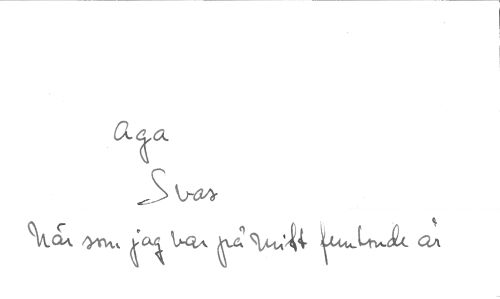 Aga
Svas
När som jag var på mitt femtonde år